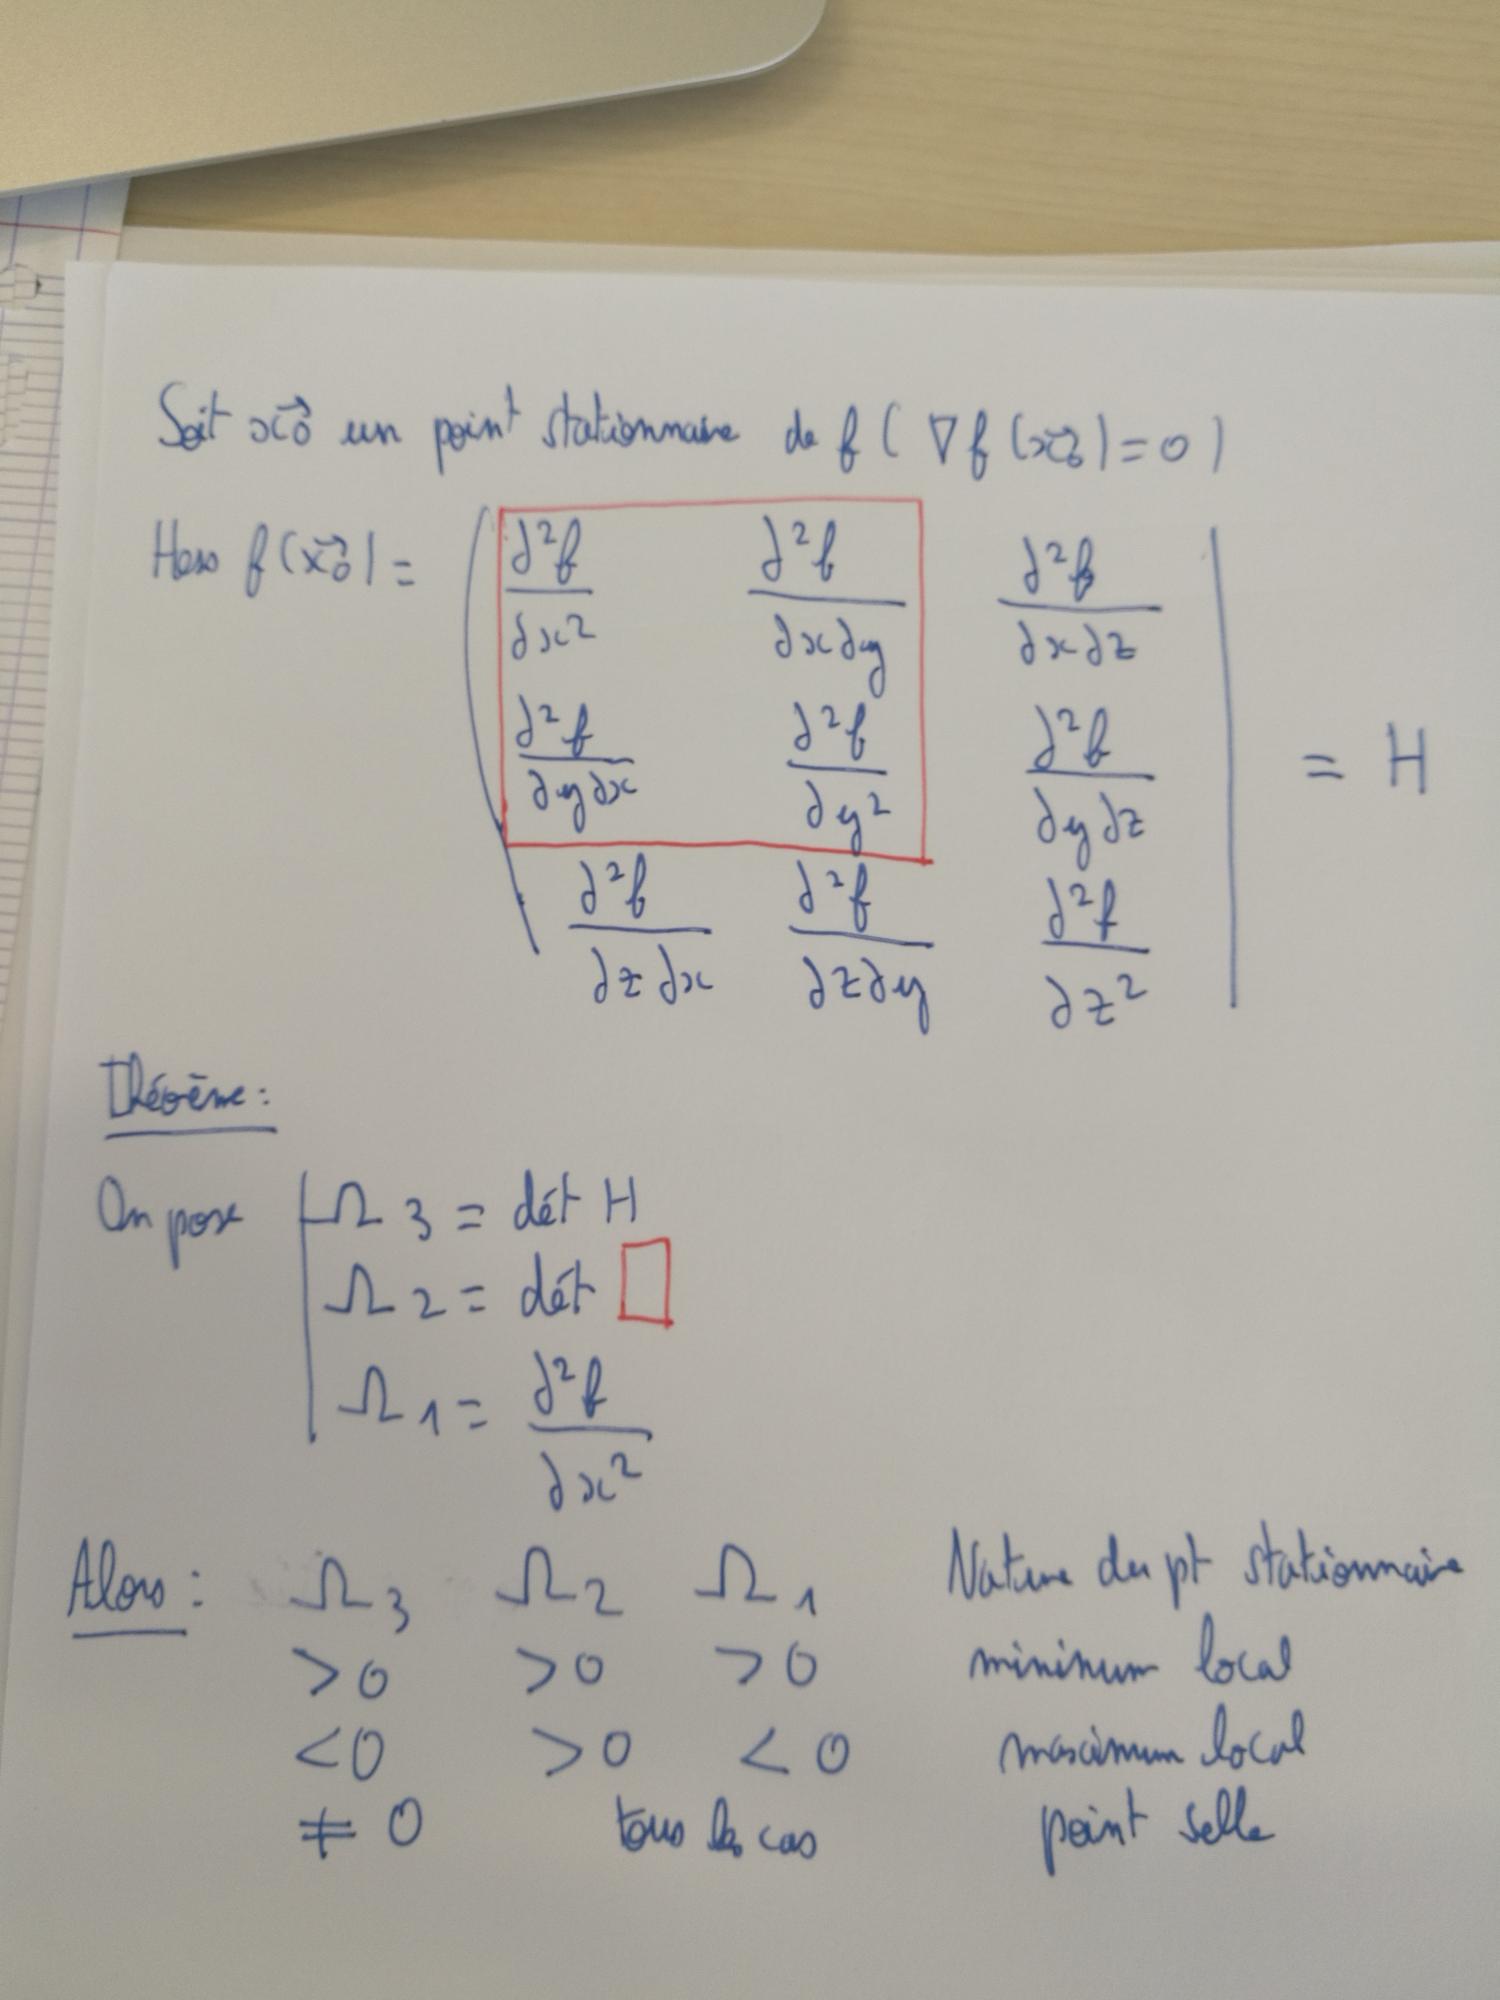 Soit x₀⃗ un point stationnaire de f ( ∇f (x₀⃗) = 0 )
Hess f (x₀⃗) = ( ∂²f/∂x² ∂²f/∂x∂y ∂²f/∂x∂z
∂²f/∂y∂x ∂²f/∂y² ∂²f/∂y∂z | = H
∂²f/∂z∂x ∂²f/∂z∂y ∂²f/∂z²
Théorème :
On pose Ω 3 = dét H
Ω 2 = dét □
Ω 1 = ∂²f/∂x²
Alors : Ω₃ Ω₂ Ω₁ Nature du pt stationnaire
>0 >0 >0 minimum local
<0 >0 <0 maximum local
≠ 0 tous les cas point selle